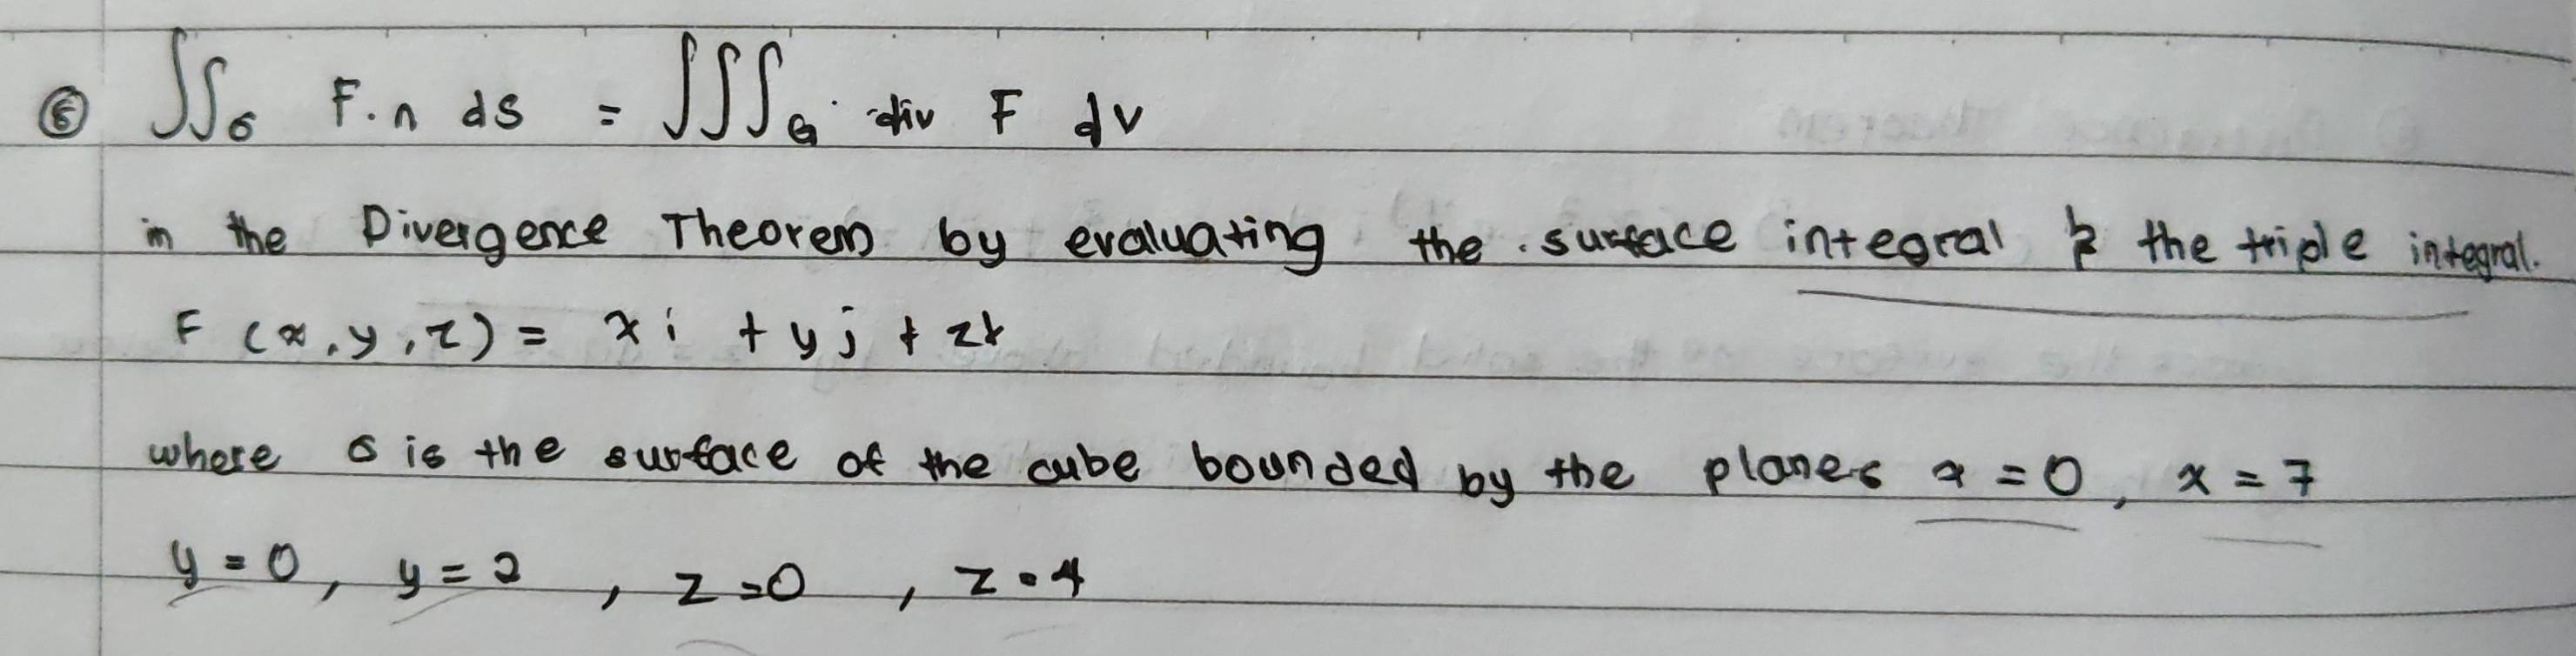 ⑥ ∫∫σ F.n ds = ∫∫∫G div F dv
in the Divergence Theorem by evaluating the surface integral & the triple integral.
F (x,y,z) = xi + yj + zk
where σ is the surface of the cube bounded by the planes x=0, x=7
y=0, y=2, z=0, z=4